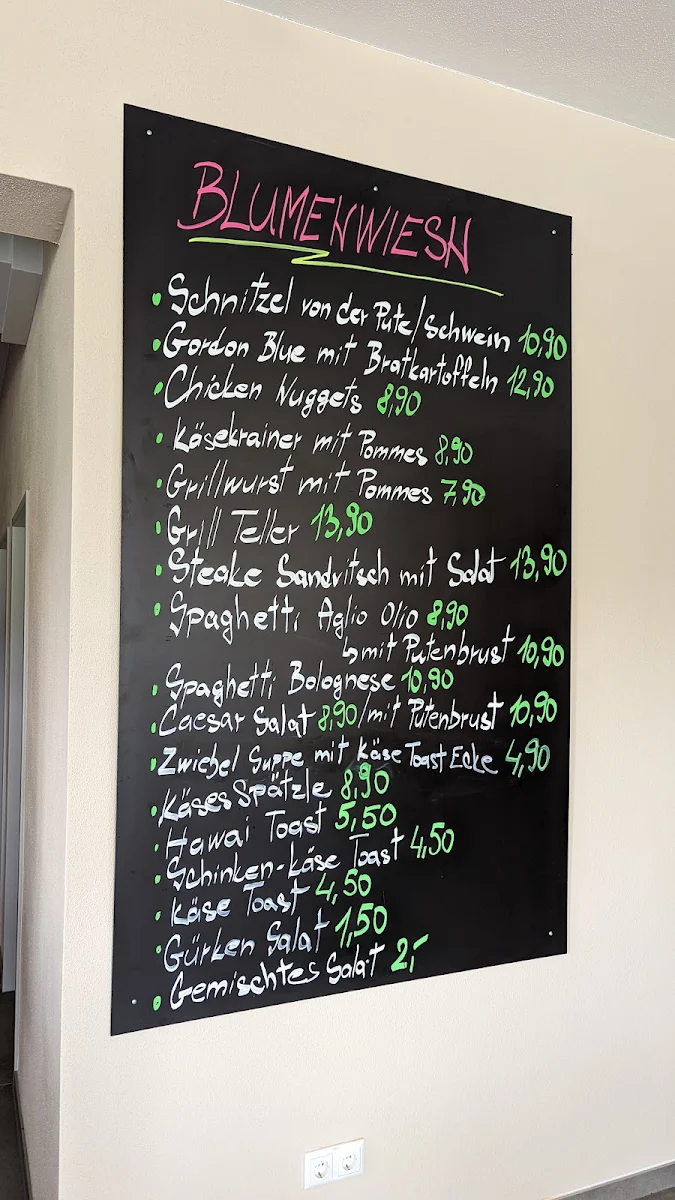 BLUMENWIESN
• Schnitzel von der Pute/Schwein 10,90
• Gordon Blue mit Bratkartoffeln 12,90
• Chicken Nuggets 8,90
• Käsekrainer mit Pommes 8,90
• Grillwurst mit Pommes 7,90
• Grill Teller 13,90
• Steake Sandvitsch mit Salat 13,90
• Spaghetti Aglio Olio 8,90
↳ mit Putenbrust 10,90
• Spaghetti Bolognese 10,90
• Caesar Salat 8,90/mit Putenbrust 10,90
• Zwiebel Suppe mit Käse Toast Ecke 4,90
• Käses Spätzle 8,90
• Hawai Toast 5,50
• Schinken-Käse Toast 4,50
• Käse Toast 4,50
• Gürken Salat 1,50
• Gemischtes Salat 2,-